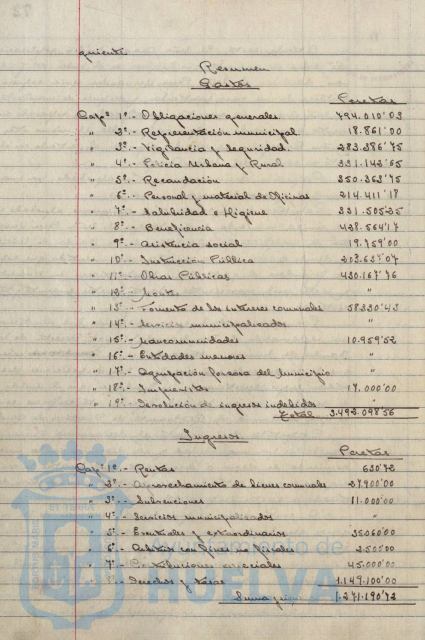 quiente
Resumen
Gastos
Pesetas
Capº 1º.- Obligaciones generales 794.010'03
" 2º.- Representación municipal 18.861'00
" 3º.- Vigilancia y seguridad 283.386'75
" 4º.- Policia Urbana y Rural 331.143'65
" 5º.- Recaudación 350.363'75
" 6º.- Personal y material de Oficinas 214.411'18
" 7º.- Salubridad e Higiene 331.505'25
" 8º.- Beneficencia 428.564'17
" 9º.- Asistencia social 19.759'00
" 10º.- Instrucción Pública 203.637'07
" 11º.- Obras Públicas 430.167'76
" 12º.- Montes "
" 13º.- Fomento de los intereses comunales 58330'43
" 14º.- Servicios municipalizados "
" 15º.- Mancomunidades 10.959'52
" 16º.- Entidades menores "
" 17º.- Agrupación forzosa del Municipio "
" 18º.- Imprevistos 17.000'00
" 19º.- Devolución de ingresos indebidos
Total 3.492.098'56
Ingresos
Pesetas
Capº 1º.- Rentas 630'72
" 2º.- Aprovechamiento de bienes comunales 27.900'00
" 3º.- Subvenciones 11.000'00
" 4º.- Servicios municipalizados "
" 5º.- Eventuales y extraordinarios 35060'00
" 6º.- Arbitrios con fines no fiscales 2.500'00
" 7º.- Contribuciones especiales 45.000'00
" 8º.- Derechos y tasas 1.149.100'00
Suma y sigue 1.271.190'72
HUELVA